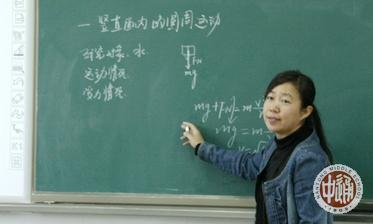 一 竖直面内的圆周运动
研究对象:水
运动情况
受力情况
FN
mg
mg+FN=m
mg=m
v=√
中雅